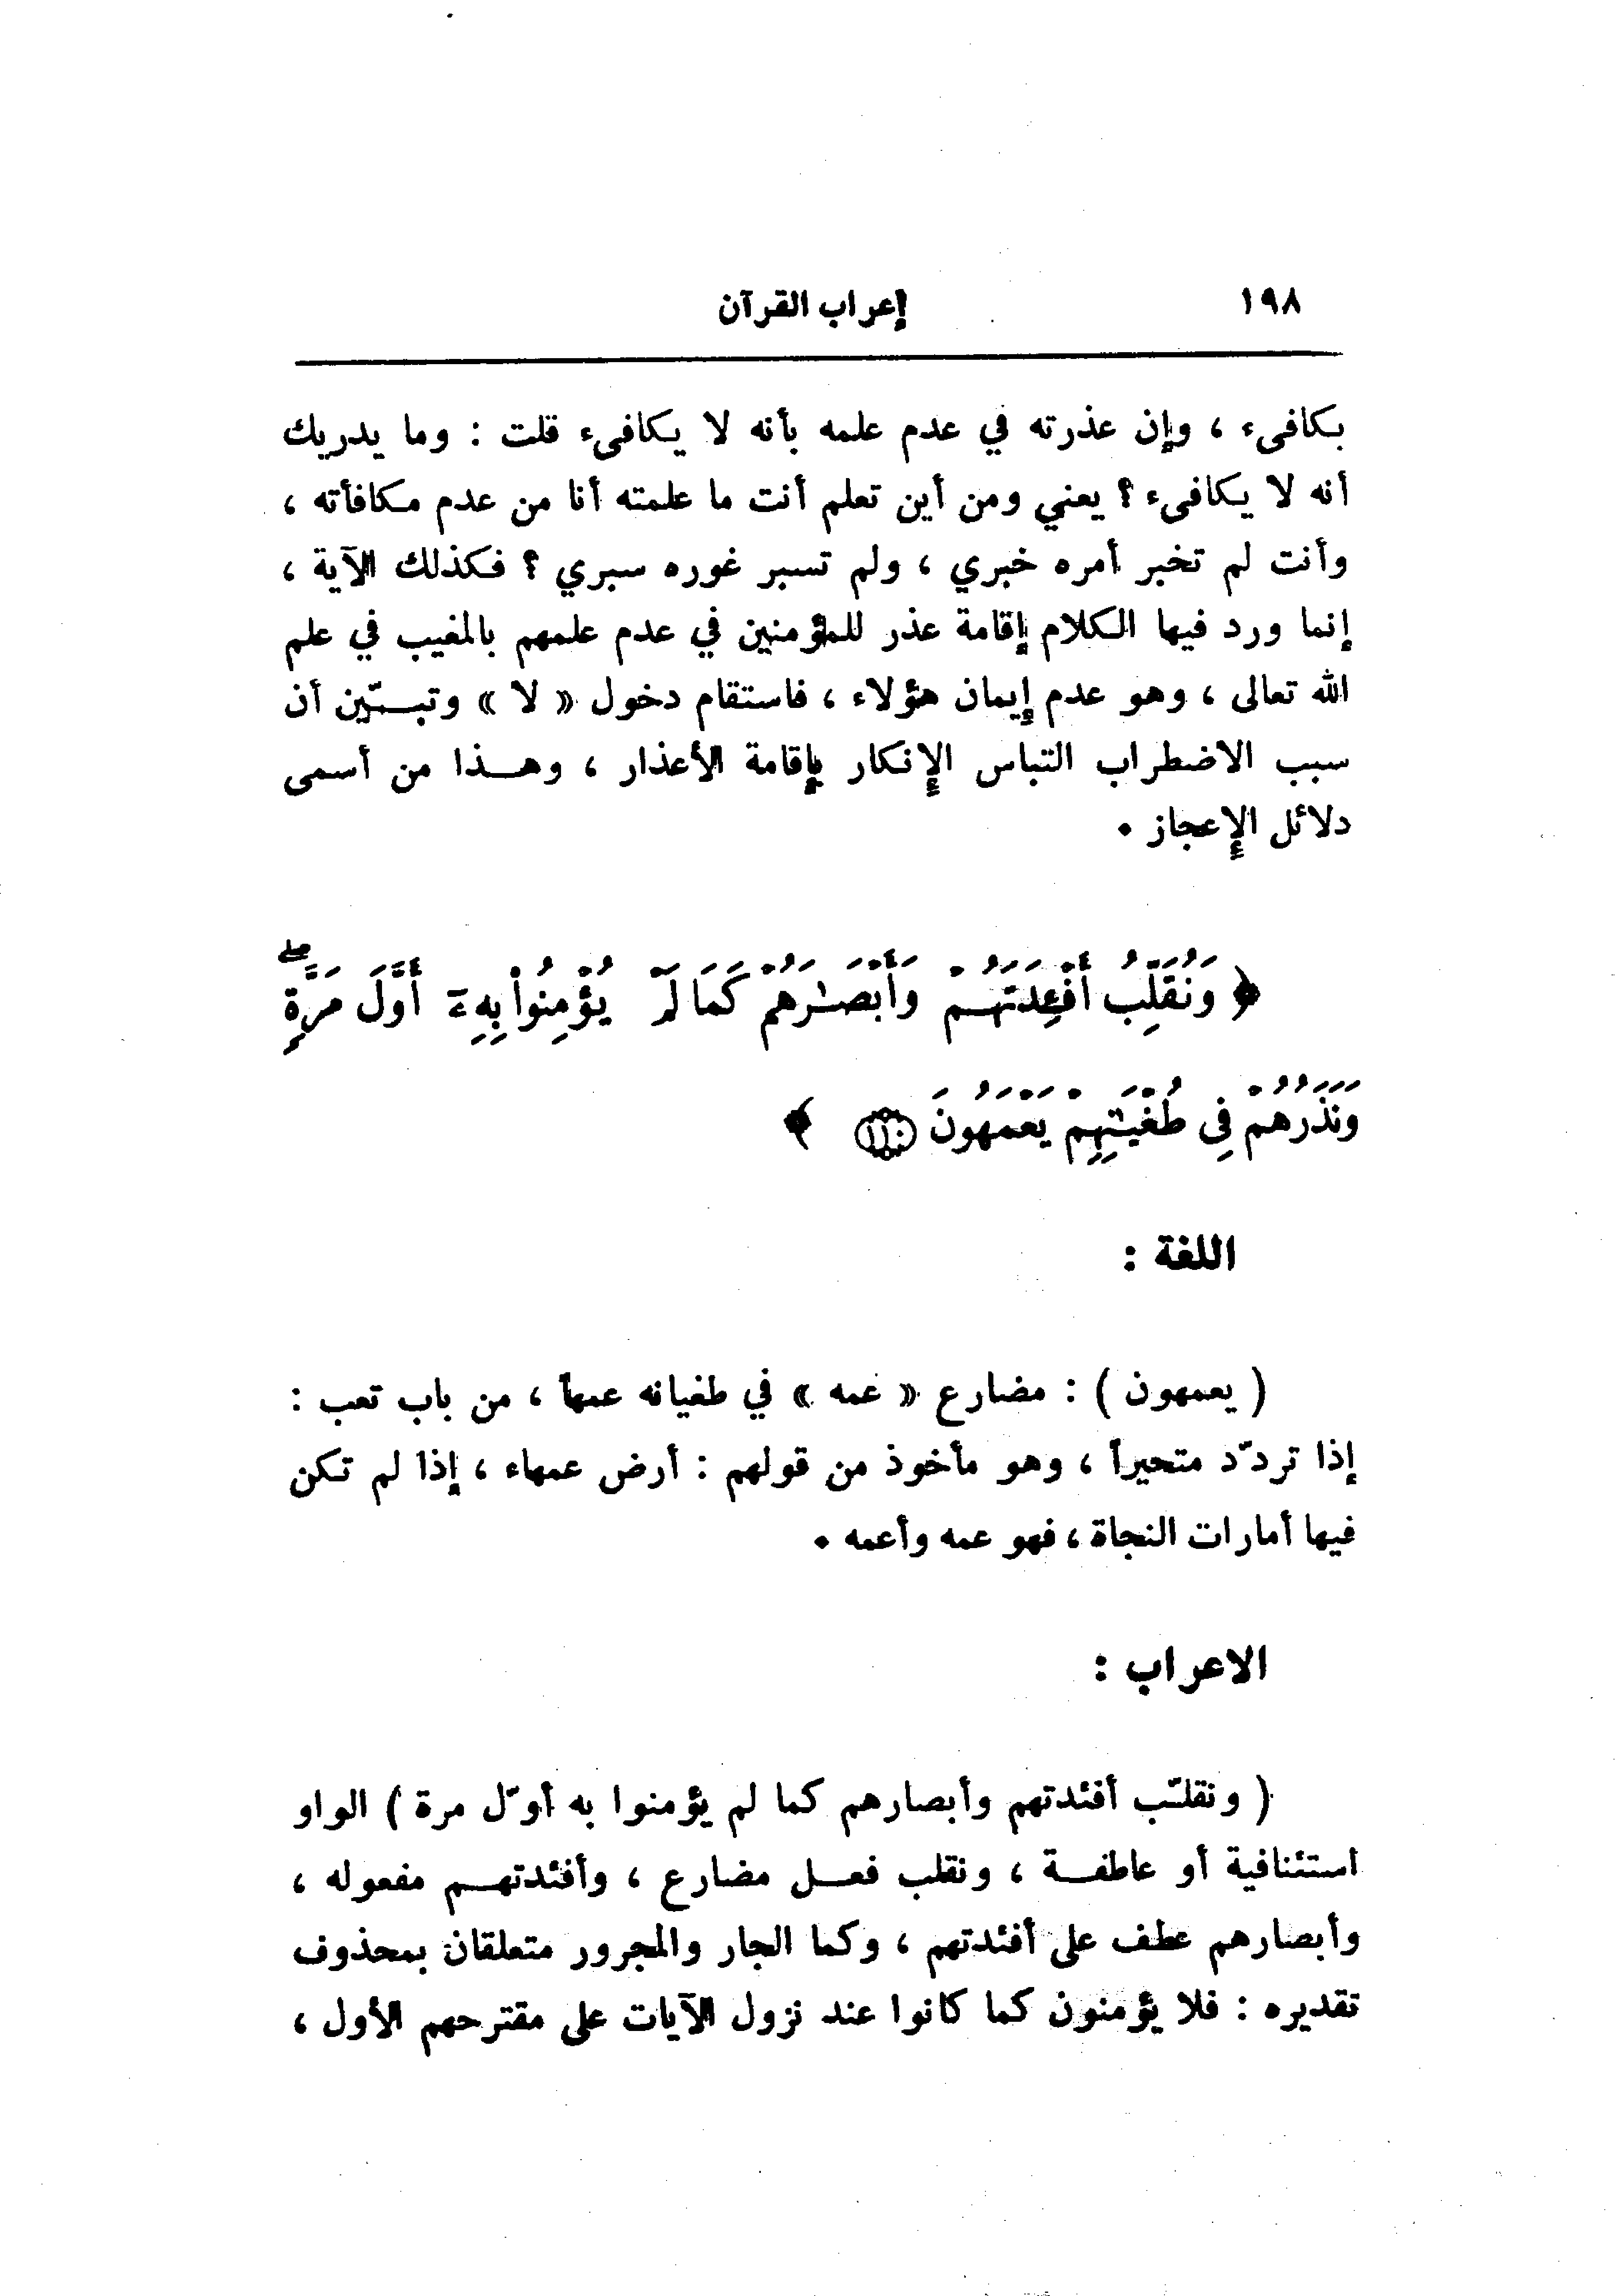 ١٩٨ إعراب القرآن
بكافىء ، وإن عذرته في عدم علمه بأنه لا يكافىء قلت : وما يدريك
أنه لا يكافىء ؟ يعني ومن أين تعلم أنت ما علمته أنا من عدم مكافأته ،
وأنت لم تخبر أمره خبري ، ولم تسبر غوره سبري ؟ فكذلك الآية ،
إنما ورد فيها الكلام إقامة عذر للمؤمنين في عدم علمهم بالمغيب في علم
الله تعالى ، وهو عدم إيمان هؤلاء ، فاستقام دخول « لا » وتبيّن أن
سبب الاضطراب التباس الإنكار بإقامة الأعذار ، وهذا من أسمى
دلائل الإعجاز ٠
﴿ وَنُقَلِّبُ أَفْـِٔدَتَهُمْ وَأَبْصَـٰرَهُمْ كَمَا لَمْ يُؤْمِنُوا۟ بِهِۦٓ أَوَّلَ مَرَّةٍۖ
وَنَذَرُهُمْ فِى طُغْيَـٰنِهِمْ يَعْمَهُونَ ١١٠ ﴾
اللغة :
( يعمهون ) : مضارع « عمه » في طغيانه عمهاً ، من باب تعب :
إذا تردّد متحيراً ، وهو مأخوذ من قولهم : أرض عمهاء ، إذا لم تكن
فيها أمارات النجاة ، فهو عمه وأعمه ٠
الاعراب :
( ونقلّب أفئدتهم وأبصارهم كما لم يؤمنوا به أوّل مرة ) الواو
استئنافية أو عاطفة ، ونقلب فعل مضارع ، وأفئدتهم مفعوله ،
وأبصارهم عطف على أفئدتهم ، وكما الجار والمجرور متعلقان بمحذوف
تقديره : فلا يؤمنون كما كانوا عند نزول الآيات على مقترحهم الأول ،